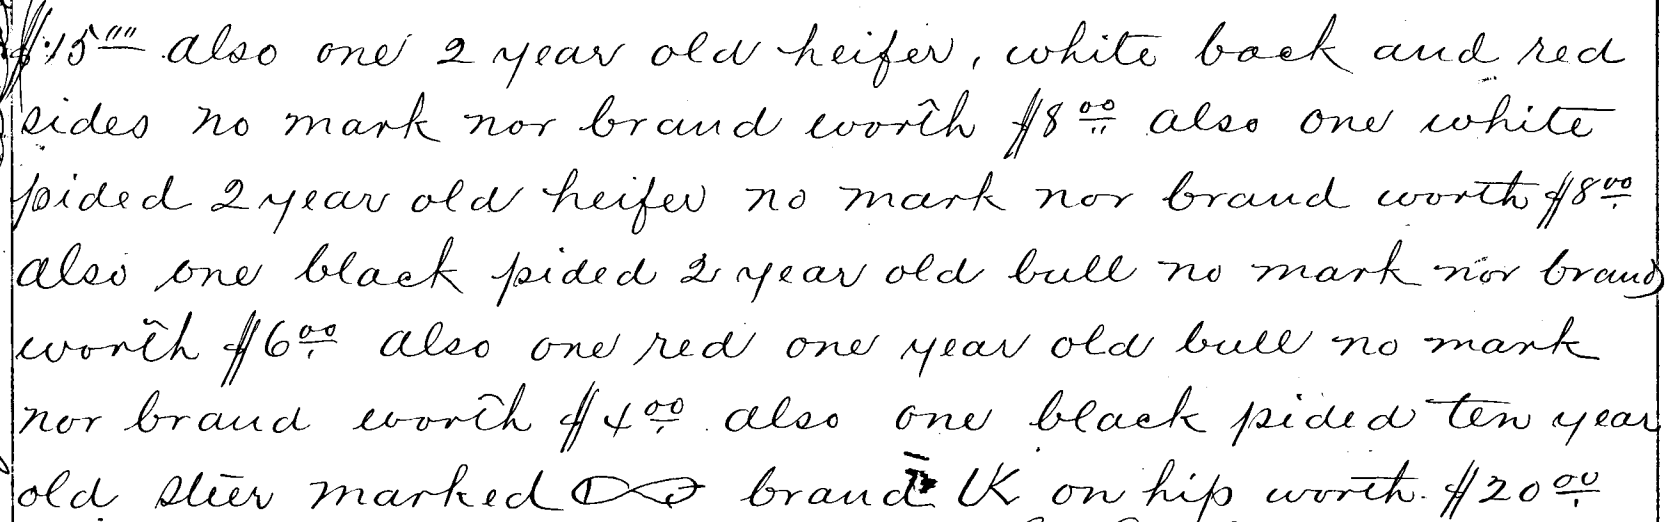 $15.00 also one 2 year old heifer, white back and red
sides no mark nor brand worth $8.00 also one white
pided 2 year old heifer no mark nor brand worth $8.00
also one black pided 2 year old bull no mark nor brand
worth $6.00 also one red one year old bull no mark
nor brand worth $4.00 also one black pided ten year
old steer marked brand LK on hip worth $20.00